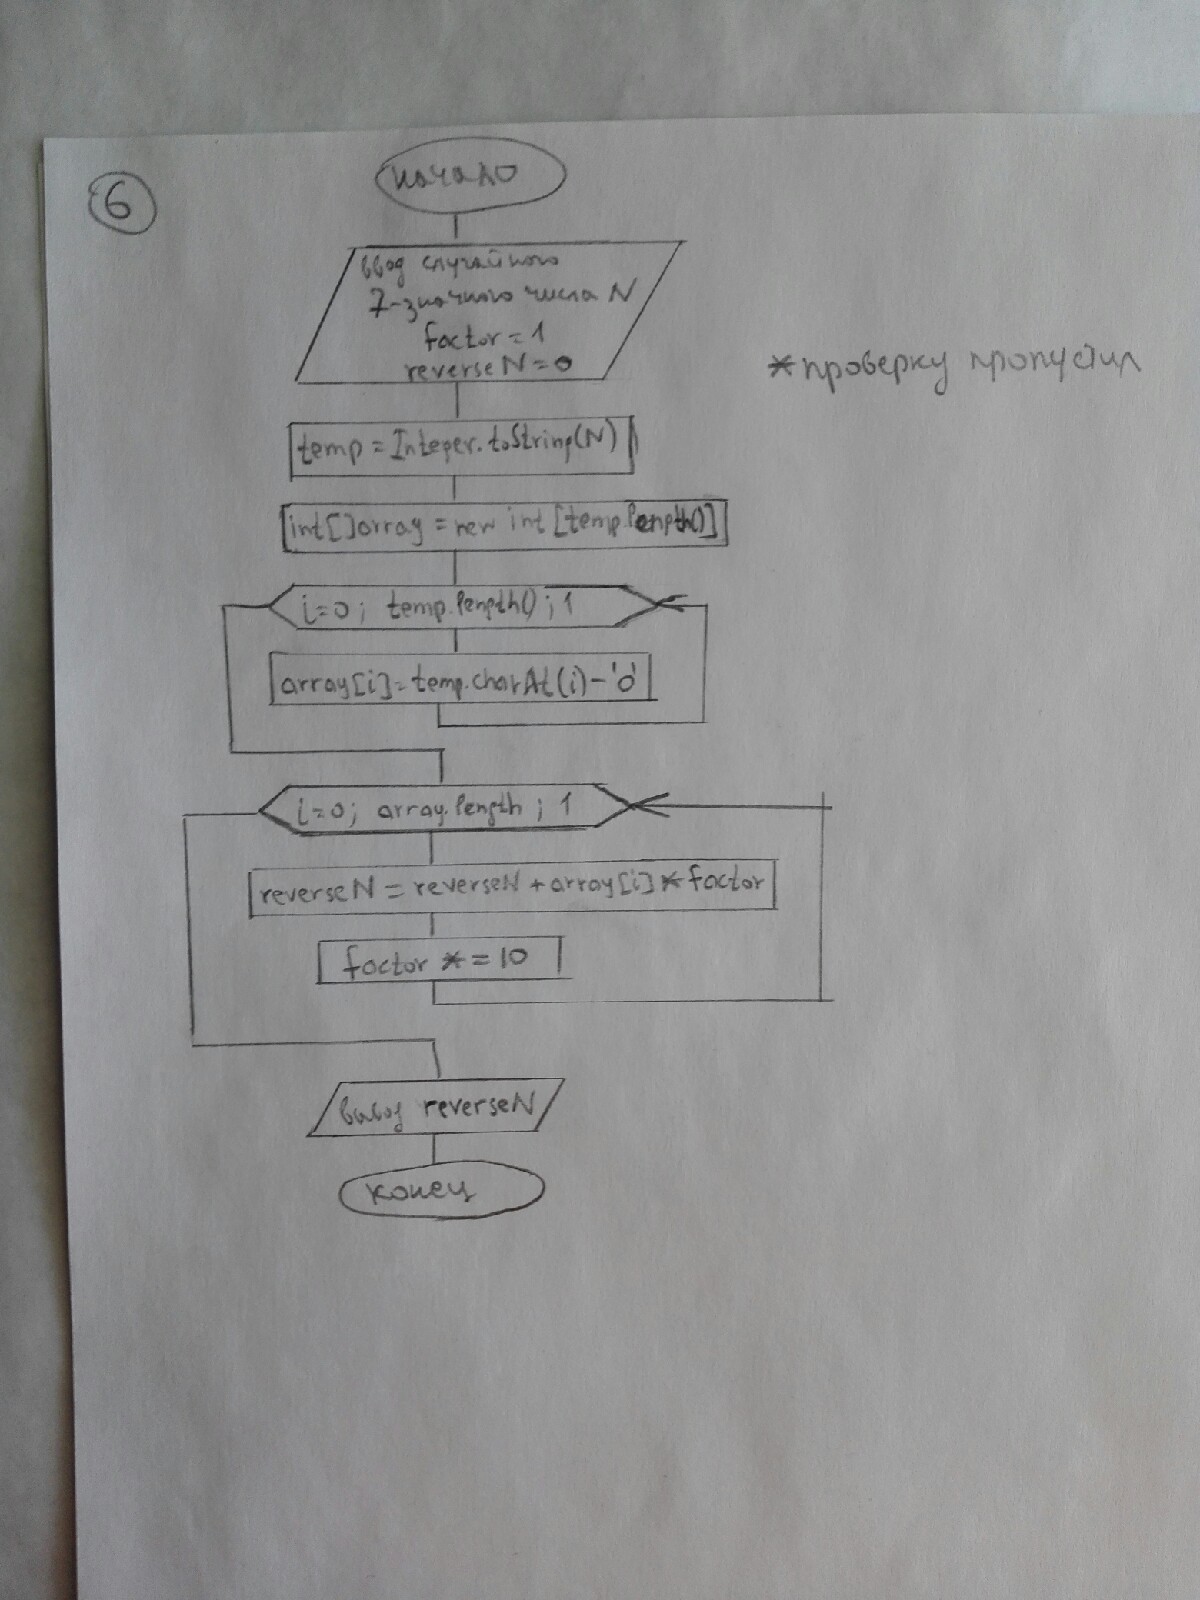 6
начало
ввод случайного
7-значного числа N
factor = 1
reverseN = 0
*проверку пропустил
temp = Integer.toString(N)
int[]array = new int [temp.length()]
i=0; temp.length(); 1
array[i]=temp.charAt(i)-'0'
i=0; array.length; 1
reverseN = reverseN + array[i] * factor
factor *= 10
вывод reverseN
конец